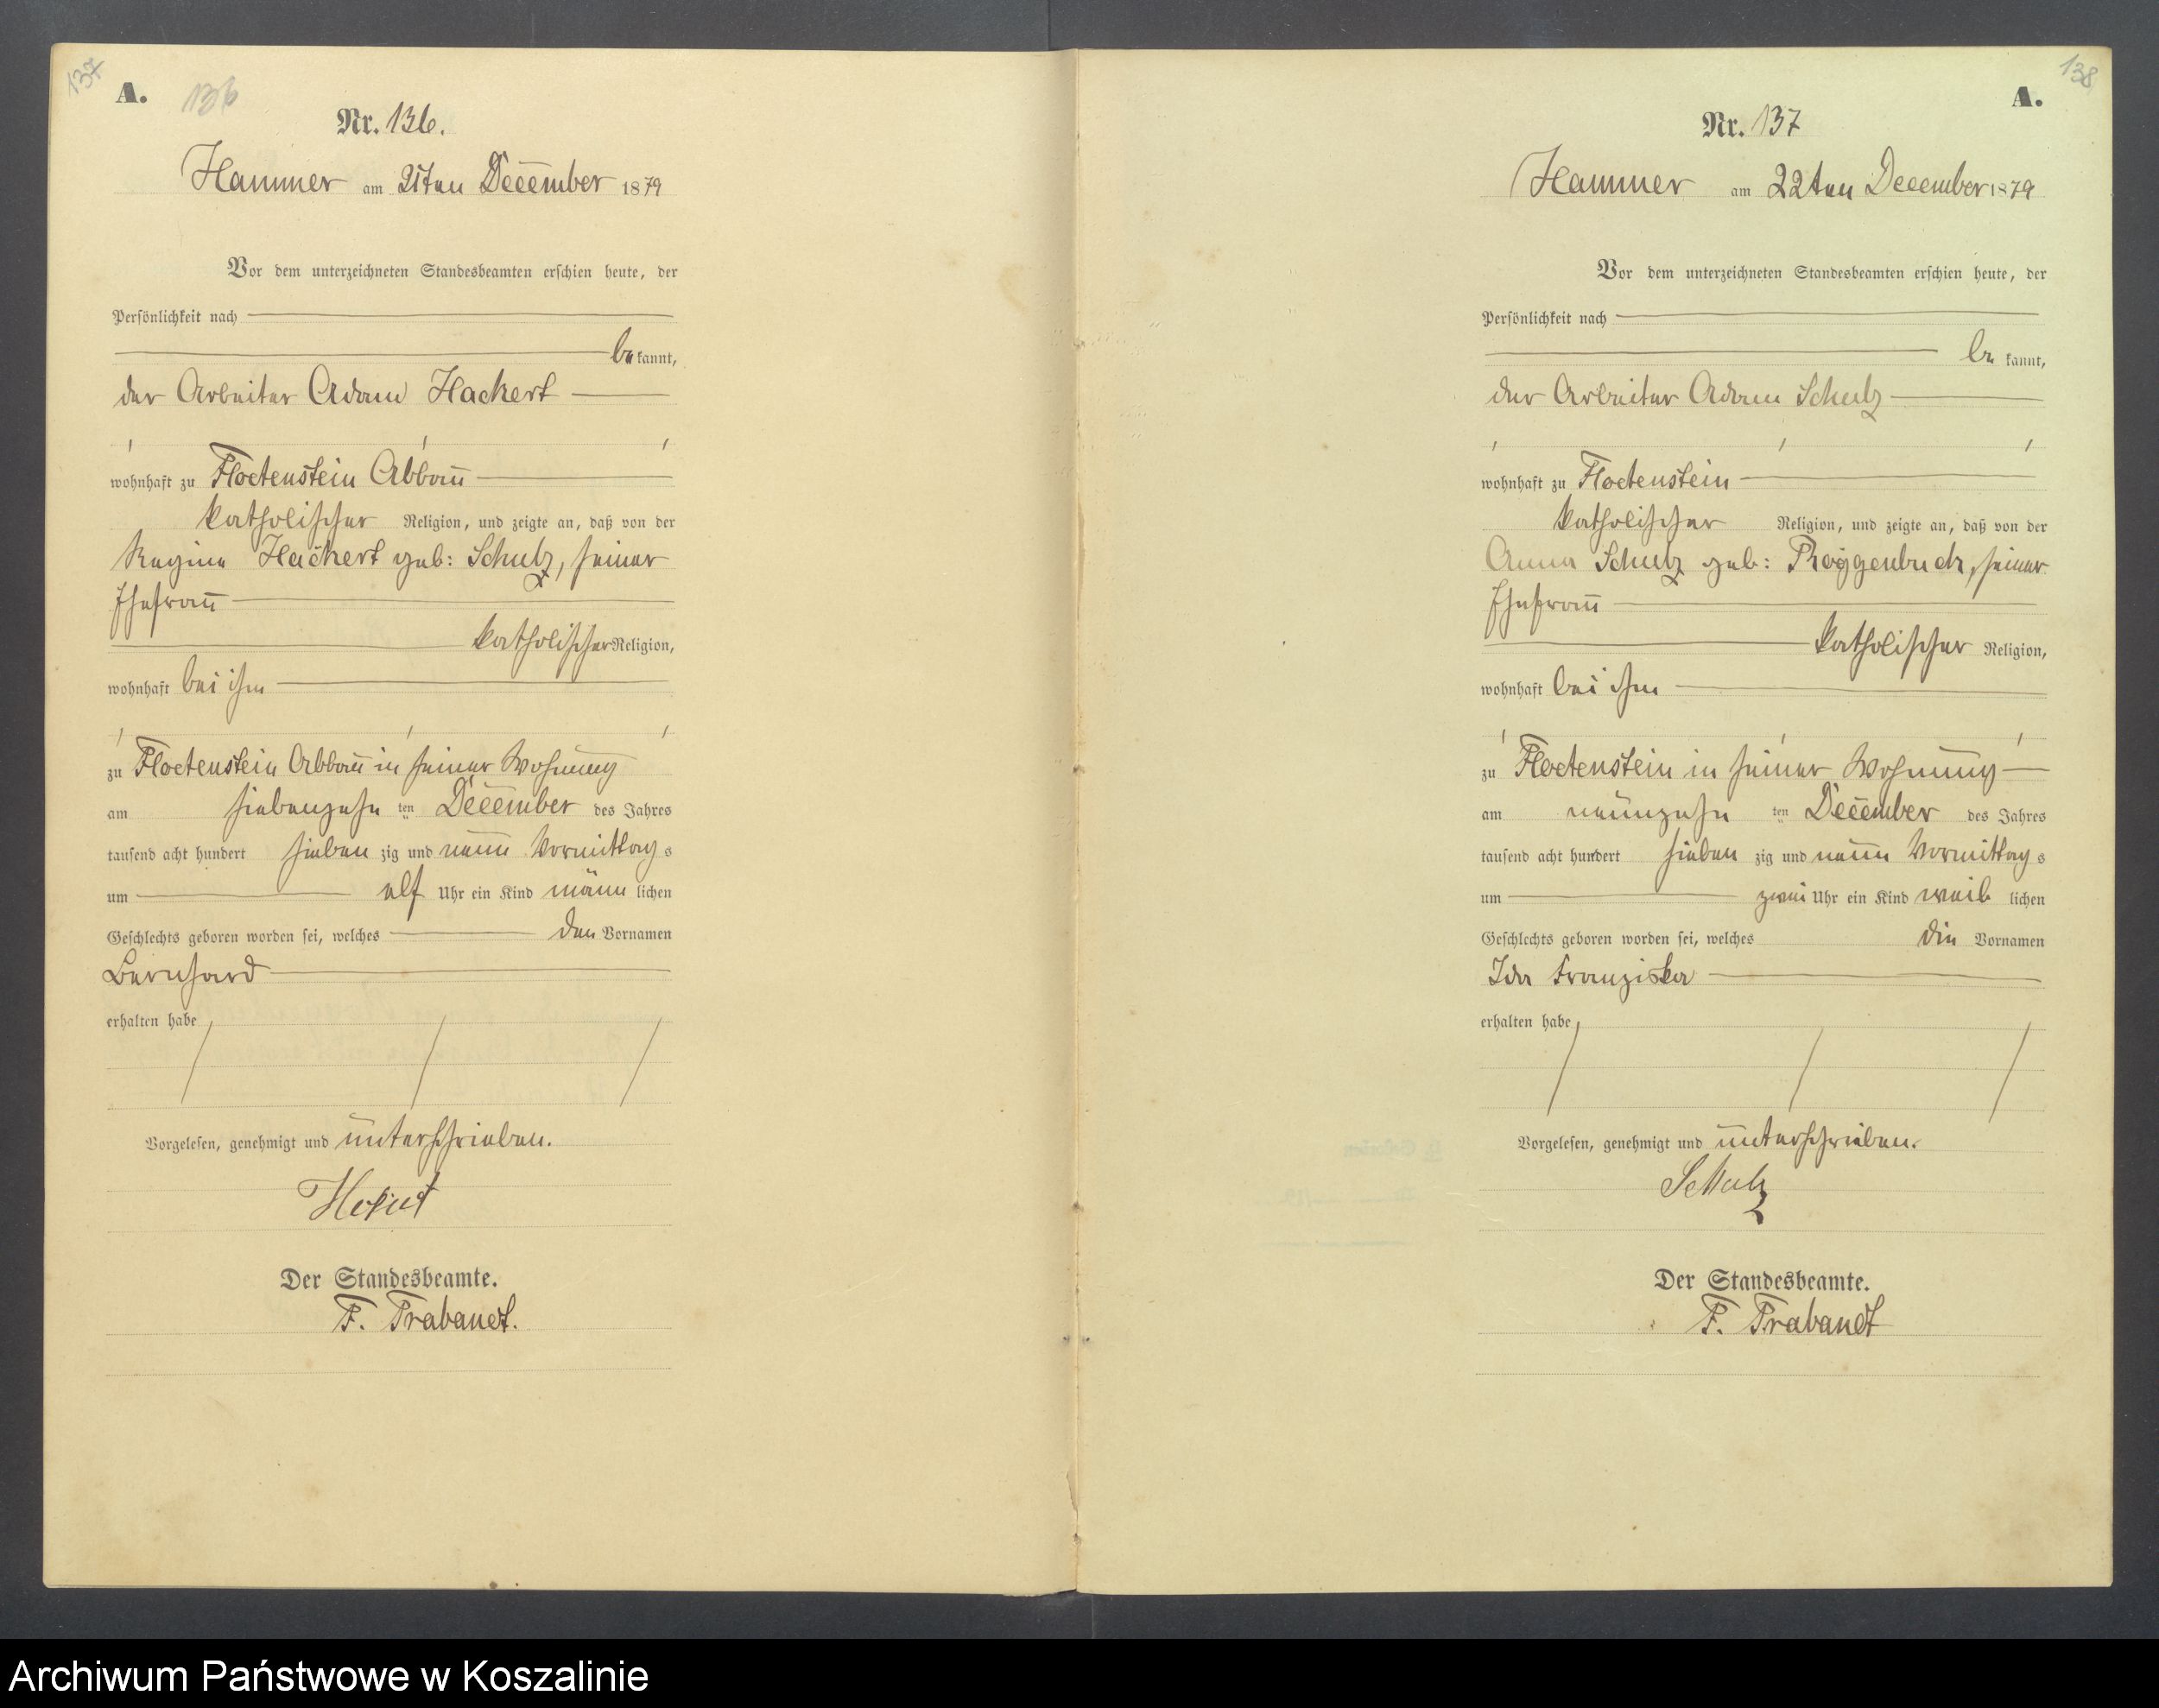 137
A. 136
Nr. 136.
Hammer am 21ten December 1879
Vor dem unterzeichneten Standesbeamten erschien heute, der
Persönlichkeit nach
bekannt,
der Arbeiter Adam Hackert
wohnhaft zu Floetenstein Abbau
katholischer Religion, und zeigte an, daß von der
Regine Hackert geb: Schulz, seiner
Ehefrau
katholischer Religion,
wohnhaft bei ihm
zu Floetenstein Abbau in seiner Wohnung
am siebenzehn ten December des Jahres
tausend acht hundert sieben zig und neun Vormittags
um elf Uhr ein Kind männlichen
Geschlechts geboren worden sei, welches den Vornamen
Bernhard
erhalten habe
Vorgelesen, genehmigt und unterschrieben.
Der Standesbeamte.
F. Trabandt.
138
A.
Nr. 137
Hammer am 22ten December 1879
Vor dem unterzeichneten Standesbeamten erschien heute, der
Persönlichkeit nach
bekannt,
der Arbeiter Adam Schulz
wohnhaft zu Floetenstein
katholischer Religion, und zeigte an, daß von der
Anna Schulz geb: Roggenbuck, seiner
Ehefrau
katholischer Religion,
wohnhaft bei ihm
zu Floetenstein in seiner Wohnung
am neunzehn ten December des Jahres
tausend acht hundert sieben zig und neun Vormittags
um zwei Uhr ein Kind weiblichen
Geschlechts geboren worden sei, welches die Vornamen
Ida Franziska
erhalten habe
Vorgelesen, genehmigt und unterschrieben.
Schulz
Der Standesbeamte.
F. Trabandt
Archiwum Państwowe w Koszalinie